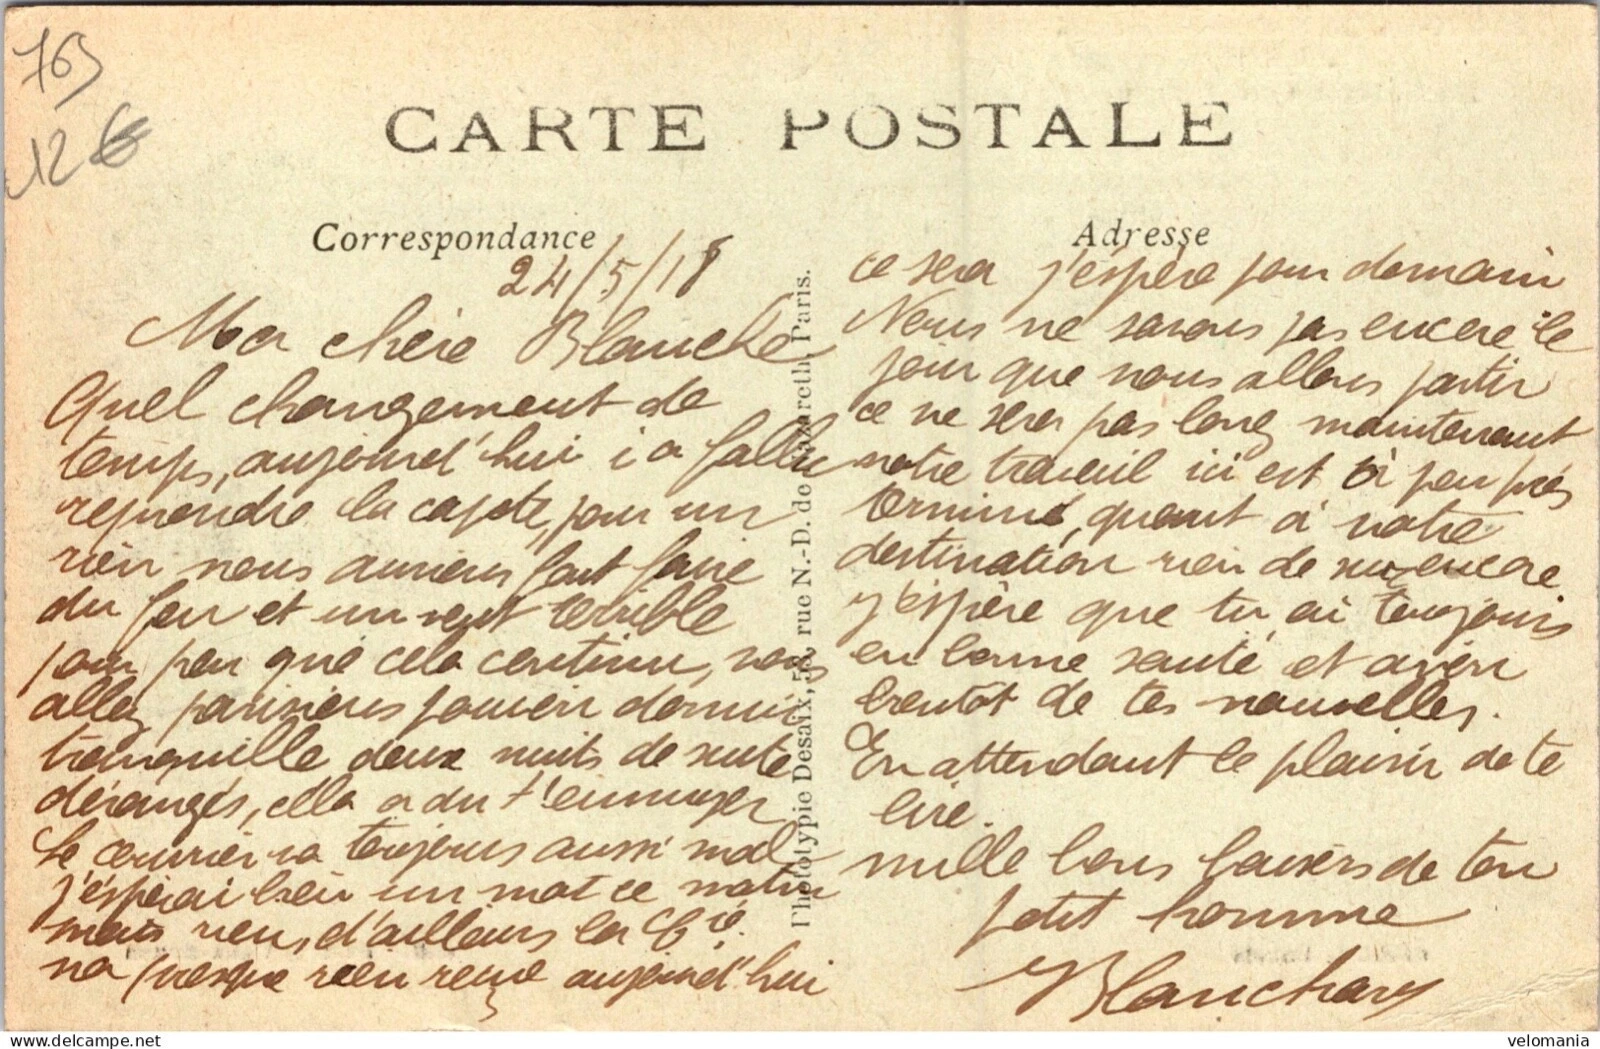 763
12 €
CARTE POSTALE
Correspondance
24/5/18
Ma chère Blanche
Quel changement de
temps, aujourd'hui i a fallu
reprendre la capote, pour un
rien nous aurions fait faire
du feu et un vent terrible
pour peu que cela continu, vous
allez parisiens pouvoir dormir
tranquille deux nuits de suite
dérangés, cela a du t'ennuyer
Le courrier va toujours aussi mal
j'espérai bien un mot ce matin
mais rien, d'ailleurs la Cie
na presque rien reçue aujourd'hui
Phototypie Desaix, rue N.-D. de Nazareth, Paris.
Adresse
ce sera j'espère pour demain
Nous ne savons pas encore le
jour que nous allons partir
ce ne sera pas long maintenant
notre travail ici est à peu près
terminé, quant à notre
destination rien de su encore
J'espère que tu ai toujours
en bonne santé et avoir
bientôt de tes nouvelles.
En attendant le plaisir de te
lire.
mille bons baisers de ton
petit homme
Blanchard
velomania